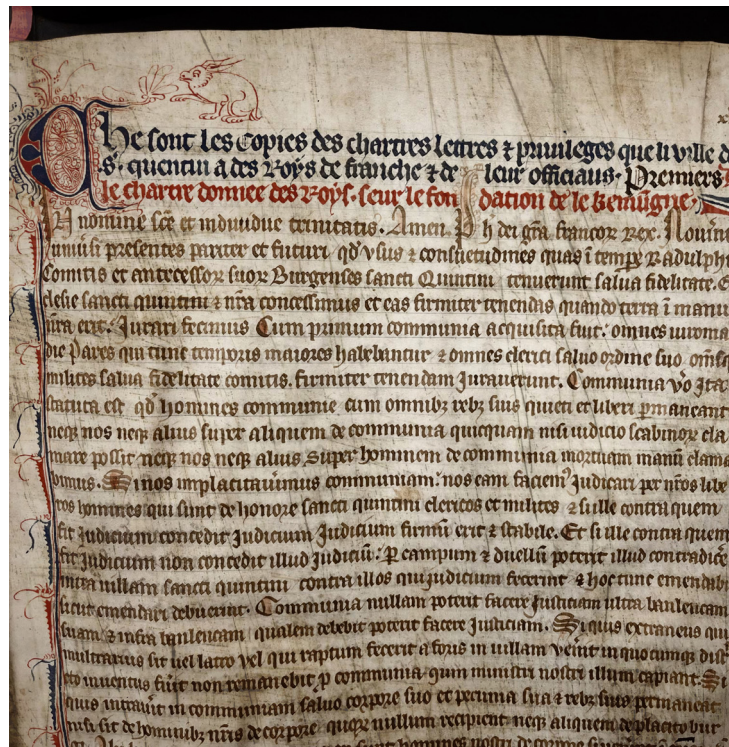 Che sont les Copies des chartres lettres ⁊ priuileges que li ville d
s᾽. quentin a des Roys de franche ⁊ de leur officiaus. Premiers
le chartre donnee des Roys. seur le fondation de le kemugne.
IN nomine sc̄e et indiuidue trinitatis. Amen. Ph dei gr̄a francor rex. Nouerint
uniuersi presentes pariter et futuri qđ vsus ⁊ consuetudines quas ī tempr̄e Radulphi
Comitis et antecessor suor Burgenses sancti Quintini tenuerunt salua fidelitate. E
clesie sancti quintini ⁊ nr̄a concessimus et eas firmiter tenendas quando terra ī manu
nr̄a erit. Jurari fecimus Cum primum communia acquisita fuit. omnes uiroma
die Pares qui tunc temporis maiores habebantur ⁊ omnes clerici saluo ordine suo. om̄sq
milites salua fidelitate comitis. firmiter tenendam Jurauerunt. Communia v̊o Ita
statuta est qđ homines communie cum omnibꝫ rebꝫ suis quieti et liberi ꝑmaneant
neqꝫ nos neqꝫ alius super aliquem de communia quicquam nisi iudicio scabinor cla
mare possit neqꝫ nos neqꝫ alius super hominem de communia mortuam manū clama
bimus. Si nos implacitauimus communiam. nos eam faciemꝰ Judicari per nr̄os libe
ros homines qui sunt de honore sancti quintini clericos et milites ⁊ si ille contra quem
fit Judicium concedit Judicium Judicium firmū erit ⁊ stabile. Et si ille contra quem
fit Judicium non concedit illud Judiciū. ꝑ campum ⁊ duellū poterit illud contradicē
intra uillam sancti quintini contra illos qui judicium fecerint ⁊ hoc tunc emendabi
sicut emendari debuerint. Communia nullam poterit facere Justiciam ultra banleucam
suam ⁊ infra banleucam qualem debebit poterit facere Judiciam. Si quis extraneus qui
multrarius sit uel latro vel qui raptum fecerit a foris in uillam ven̄it in quocumqꝫ dist
cto inuentus fu̅it non remanebit ꝑ communia quin ministri nostri illum capiant. Si
quis intrau̅it in communiam saluo corpore suo et pecunia sua ⁊ rebꝫ suis permaneat
nisi sit de hominibꝫ nr̄is de corpore quoꝫ nullum recipient neqꝫ aliquem de placito bur
sunt homines nostri de corpore